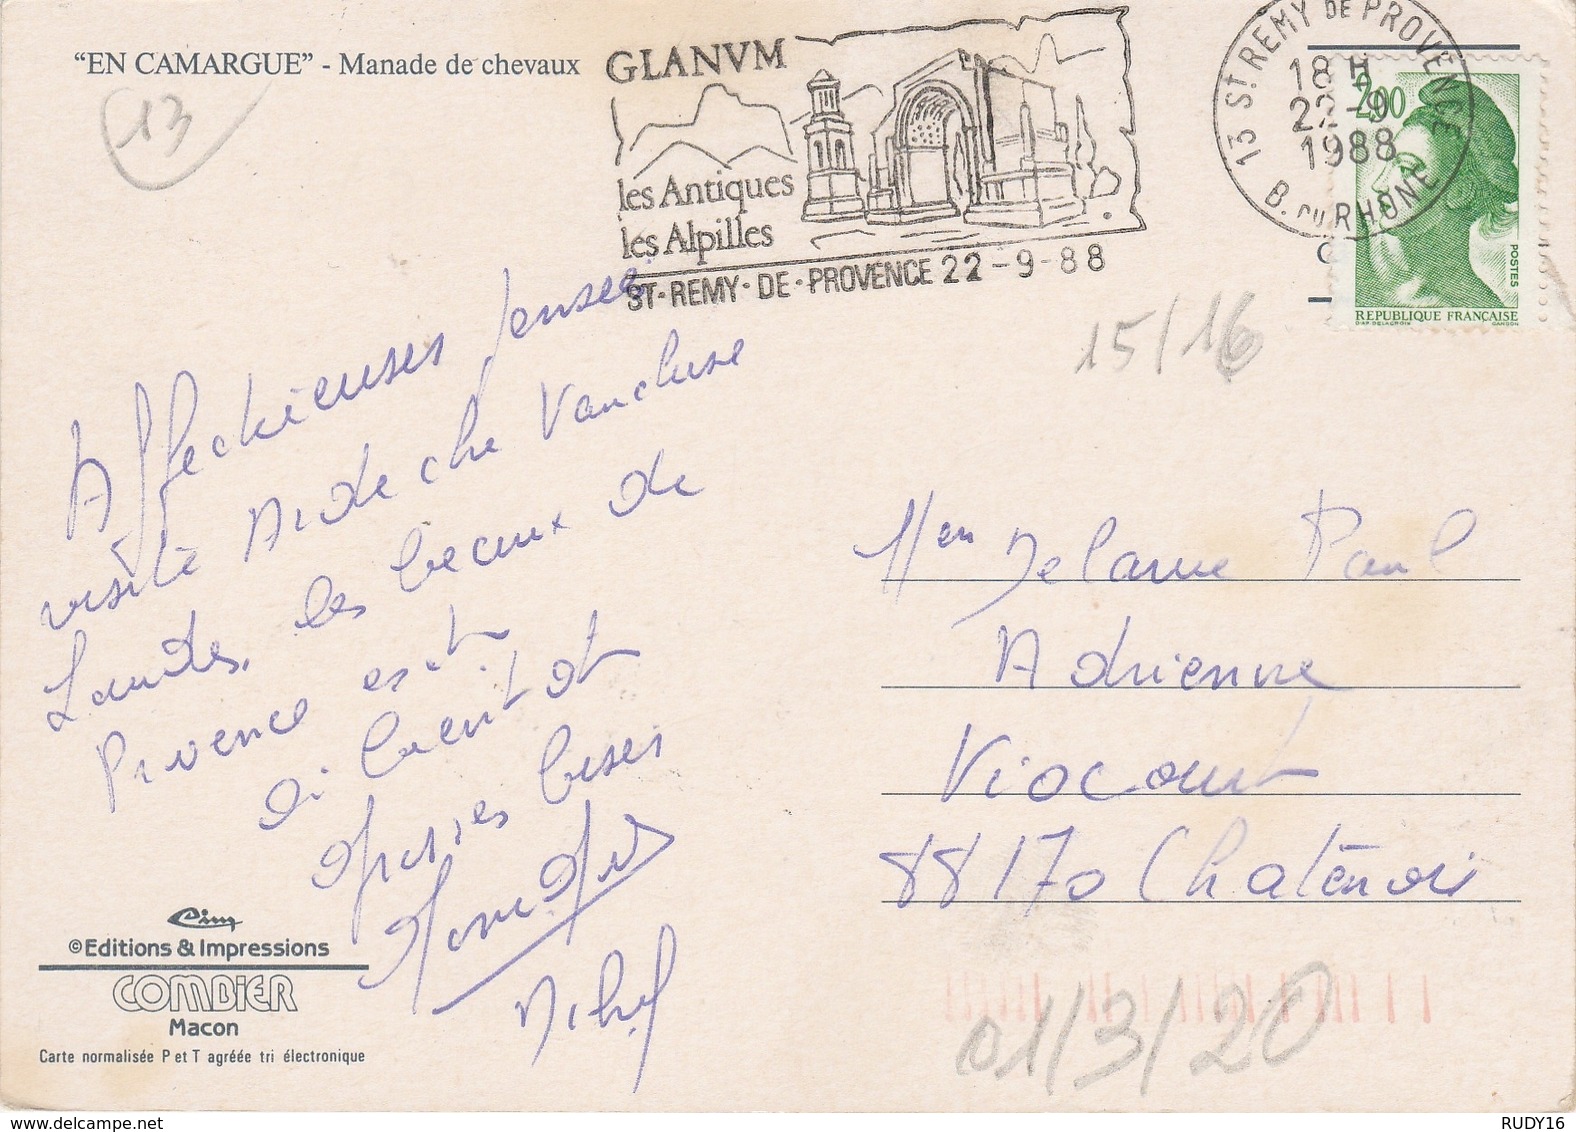 "EN CAMARGUE" - Manade de chevaux
13
GLANVM
les Antiques
les Alpilles
ST-REMY-DE-PROVENCE 22-9-88
13 ST REMY DE PROVENCE
18 H
22-9
1988
B. DU RHONE
2,00
POSTES
REPUBLIQUE FRANÇAISE
D'AP. DELACROIX GANDON
15/16
Affectieuses pensees
visite Ardeche Vaucluse
les beaux de
Provence est
bientot
bises
Mr en Delarue Paul
Adrienne
Viocourt
88170 Chatenois
01/3/20
Cim
©Editions & Impressions
COMBIER
Macon
Carte normalisée P et T agréée tri électronique
www.delcampe.net
RUDY16